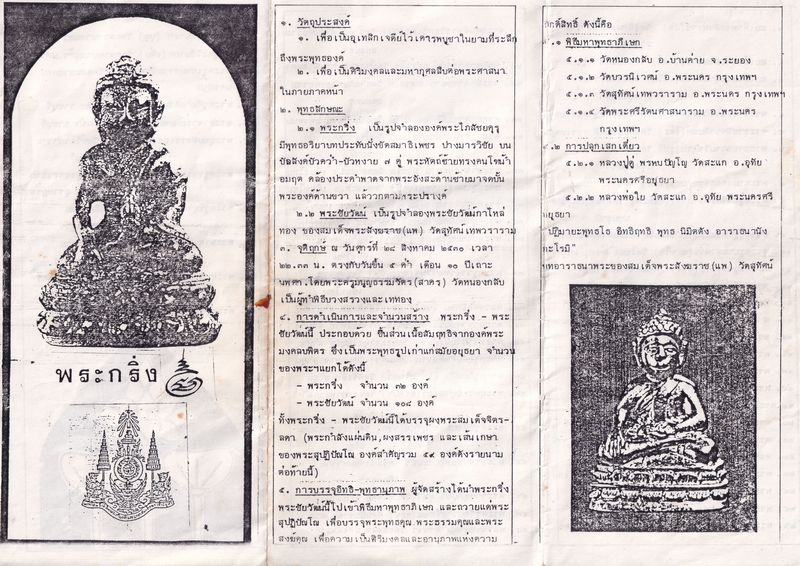 พระกริ่ง
๑. วัตถุประสงค์
๑. เพื่อเป็นอุเทสิกเจดีย์ไว้เคารพบูชาในยามที่ระลึก
ถึงพระพุทธองค์
๒. เพื่อเป็นศิริมงคลและมหากุศลสืบต่อพระศาสนา
ในภายภาคหน้า
๒. พุทธลักษณะ
๒.๑ พระกริ่ง เป็นรูปจำลององค์พระไภสัชยคุรุ
มีพุทธอริยาบทประทับนั่งขัดสมาธิเพชร ปางมารวิชัย บน
บัลลังค์บัวคว่ำ-บัวหงาย ๗ คู่ พระหัตถ์ซ้ายทรงคนโทน้ำ
อมฤต คล้องประคำพาดจากพระอังสะด้านซ้ายมาจดบั้น
พระองค์ด้านขวา แล้ววกตามพระปรางค์
๒.๒ พระชัยวัฒน์ เป็นรูปจำลองพระชัยวัฒน์กาไหล่
ทอง ของสมเด็จพระสังฆราช(แพ) วัดสุทัศน์เทพวราราม
๓. จุติฤกษ์ ณ วันศุกร์ที่ ๒๘ สิงหาคม ๒๕๓๐ เวลา
๒๒.๓๓ น. ตรงกับวันขึ้น ๕ ค่ำ เดือน ๑๐ ปีเถาะ
นพศก.โดยพระครูมนูญธรรมวัตร(สาคร) วัดหนองกลับ
เป็นผู้ทำพิธีบวงสรวงและเททอง
๔. การดำเนินการและจำนวนสร้าง พระกริ่ง - พระ
ชัยวัฒน์นี้ ประกอบด้วย ชิ้นส่วนเนื้อสัมฤทธิจากองค์พระ
มงคลบพิตร ซึ่งเป็นพระพุทธรูปเก่าแก่สมัยอยุธยา จำนวน
ของพระฯแยกได้ดังนี้
- พระกริ่ง จำนวน ๓๒ องค์
- พระชัยวัฒน์ จำนวน ๑๐๘ องค์
ทั้งพระกริ่ง - พระชัยวัฒน์นี้ได้บรรจุผงพระสมเด็จจิตร-
ลดา (พระกำลังแผ่นดิน,ผงสรรเพชร และเส้นเกษา
ของพระสุปฏิปัณโณ องค์สำคัญรวม ๕๙ องค์ดังรายนาม
ต่อท้ายนี้)
๕. การบรรจุอิทธิ-พุทธานุภาพ ผู้จัดสร้างได้นำพระกริ่ง
พระชัยวัฒน์นี้ไปเข้าพิธีมหาพุทธาภิเษก และถวายแด่พระ
สุปฏิปัณโณ เพื่อบรรจุพระพุทธคุณ พระธรรมคุณและพระ
สงฆ์คุณ เพื่อความเป็นศิริมงคลและอานุภาพแห่งความ
ศักดิ์สิทธิ์ ดังนี้คือ
๕.๑ พิธีมหาพุทธาภิเษก
๕.๑.๑ วัดหนองกลับ อ.บ้านค่าย จ.ระยอง
๕.๑.๒ วัดบวรนิเวศน์ อ.พระนคร กรุงเทพฯ
๕.๑.๓ วัดสุทัศน์เทพวราราม อ.พระนคร กรุงเทพฯ
๕.๑.๔ วัดพระศรีรัตนศาสนาราม อ.พระนคร
กรุงเทพฯ
๕.๒ การปลุกเสกเดี่ยว
๕.๒.๑ หลวงปู่ดู่ พรหมปัญโญ วัดสะแก อ.อุทัย
พระนครศรีอยุธยา
๕.๒.๒ หลวงพ่อใย วัดสะแก อ.อุทัย พระนครศรี
อยุธยา
"ปฏิมายะพุทธโธ อิทธิฤทธิ พุทธ นิมิตตัง อาราธนานัง
กะโรมิ"
บทอาราธนาพระของสมเด็จพระสังฆราช(แพ) วัดสุทัศน์